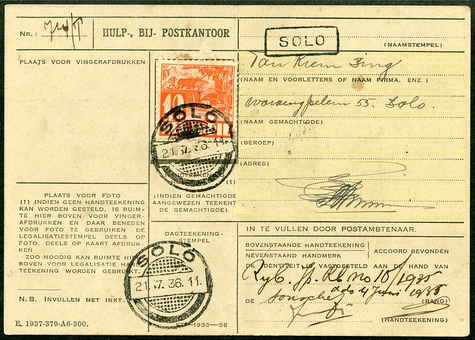 NR.:
HULP-, BIJ- POSTKANTOOR
SOLO
(NAAMSTEMPEL)
PLAATS VOOR VINGERAFDRUKKEN
10
SOLO
21.7.36.11
Tan Kiem Bing
(NAAM EN VOORLETTERS OF NAAM FIRMA, ENZ.)
55. Solo.
(NAAM GEMACHTIGDE)
(BEROEP)
(ADRES)
(1)
PLAATS VOOR FOTO
(1) INDIEN GEEN HANDTEEKENING
KAN WORDEN GESTELD, IS RUIM-
TE HIER BOVEN VOOR VINGER-
AFDRUKKEN EN DAAR BENEDEN
VOOR FOTO TE GEBRUIKEN DE
LEGALISATIESTEMPEL DEELS OP
FOTO, DEELS OP KAART AFDRUK
KEN
ZOO NOODIG KAN RUIMTE HIER
BOVEN VOOR LEGALISATIE HAND
TEEKENING WORDEN GEBRUIKT.
N.B. INVULLEN MET INKT.
E. 1937-379-A6-300.
(INDIEN GEMACHTIGDE
AANGEWEZEN TEEKENT
DE GEMACHTIGDE)
DAGTEEKENING-
STEMPEL
SOLO
21.7.36.11
IN TE VULLEN DOOR POSTAMBTENAAR.
BOVENSTAANDE HANDTEEKENING
BOVENSTAAND HANDMERK
ACCOORD BEVONDEN
DE IDENTITEIT IS VASTGESTELD AAN DE HAND VAN
(RANG)
(HANDTEEKENING)